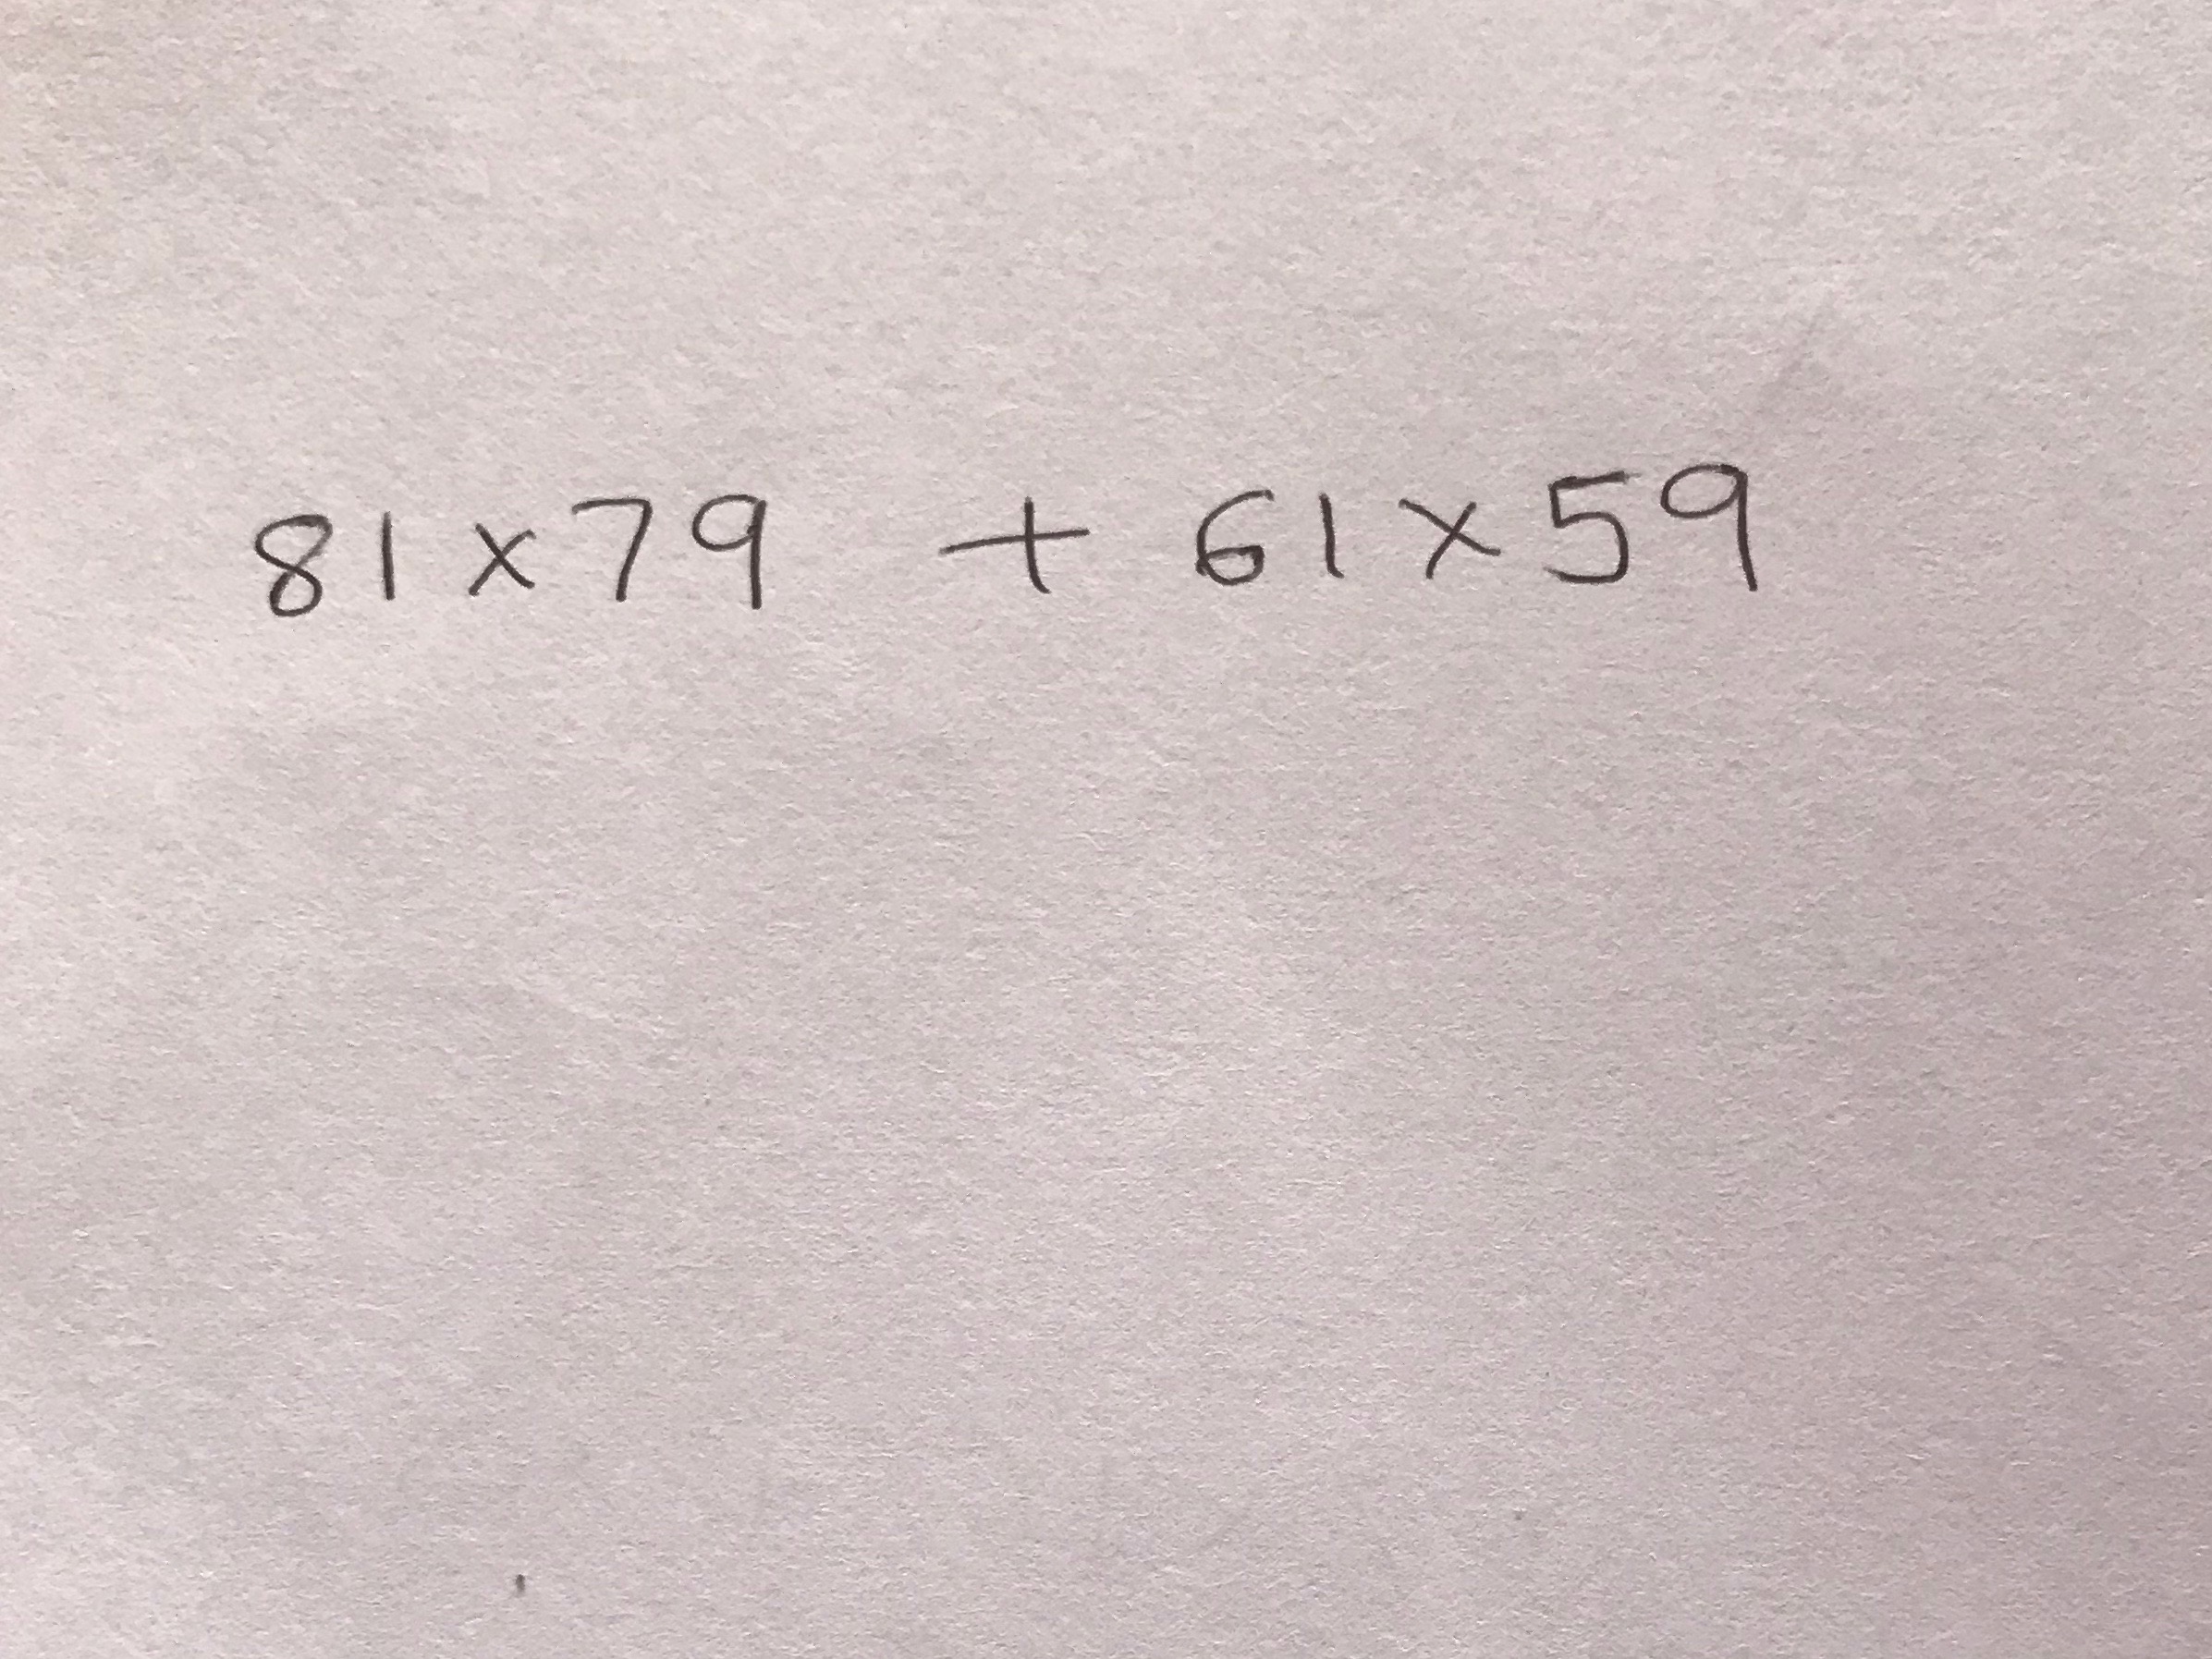 81 x 79 + 61 x 59